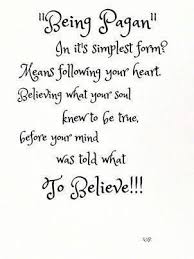 "Being Pagan"
In it's simplest form?
Means following your heart.
Believing what your soul
knew to be true,
before your mind
was told what
To Believe!!!